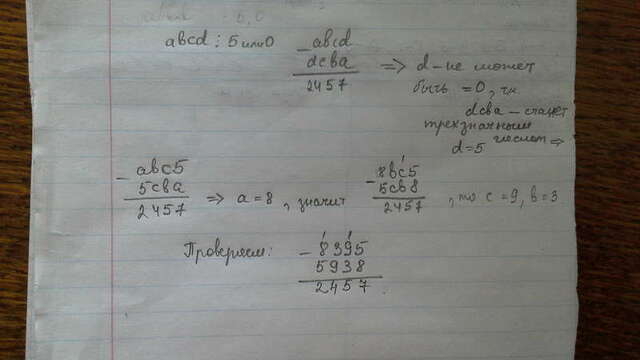 abcd ⋮ 5 или 0
- abcd
dcba
2457
=> d - не может
быть = 0, тк
dcba - станет
трехзначным
числом =>
d=5
- abc5
5cba
2457
=> a = 8, значит
- 8bc5
5cb8
2457
, то c = 9, b = 3
Проверяем:
- 8395
5938
2457